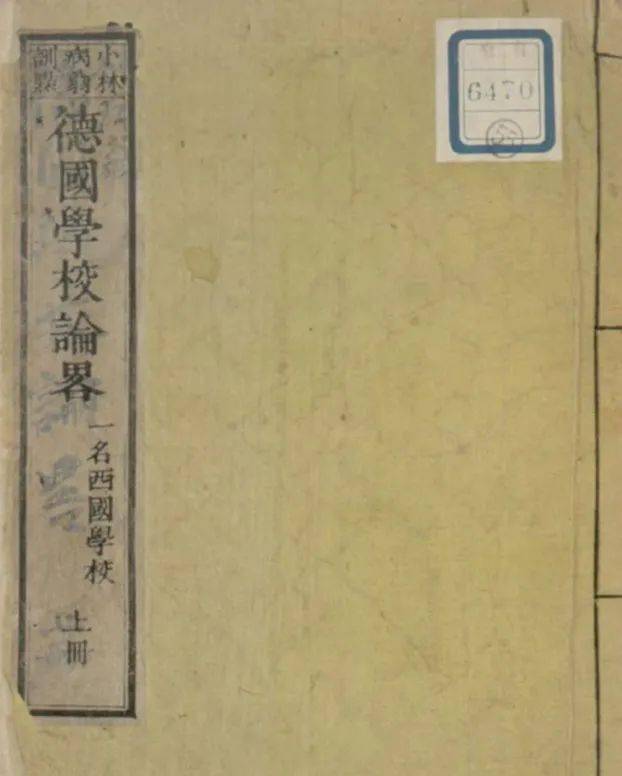 小林
病翁
訓點
德國學校論畧
一名西國學校
上冊
6470